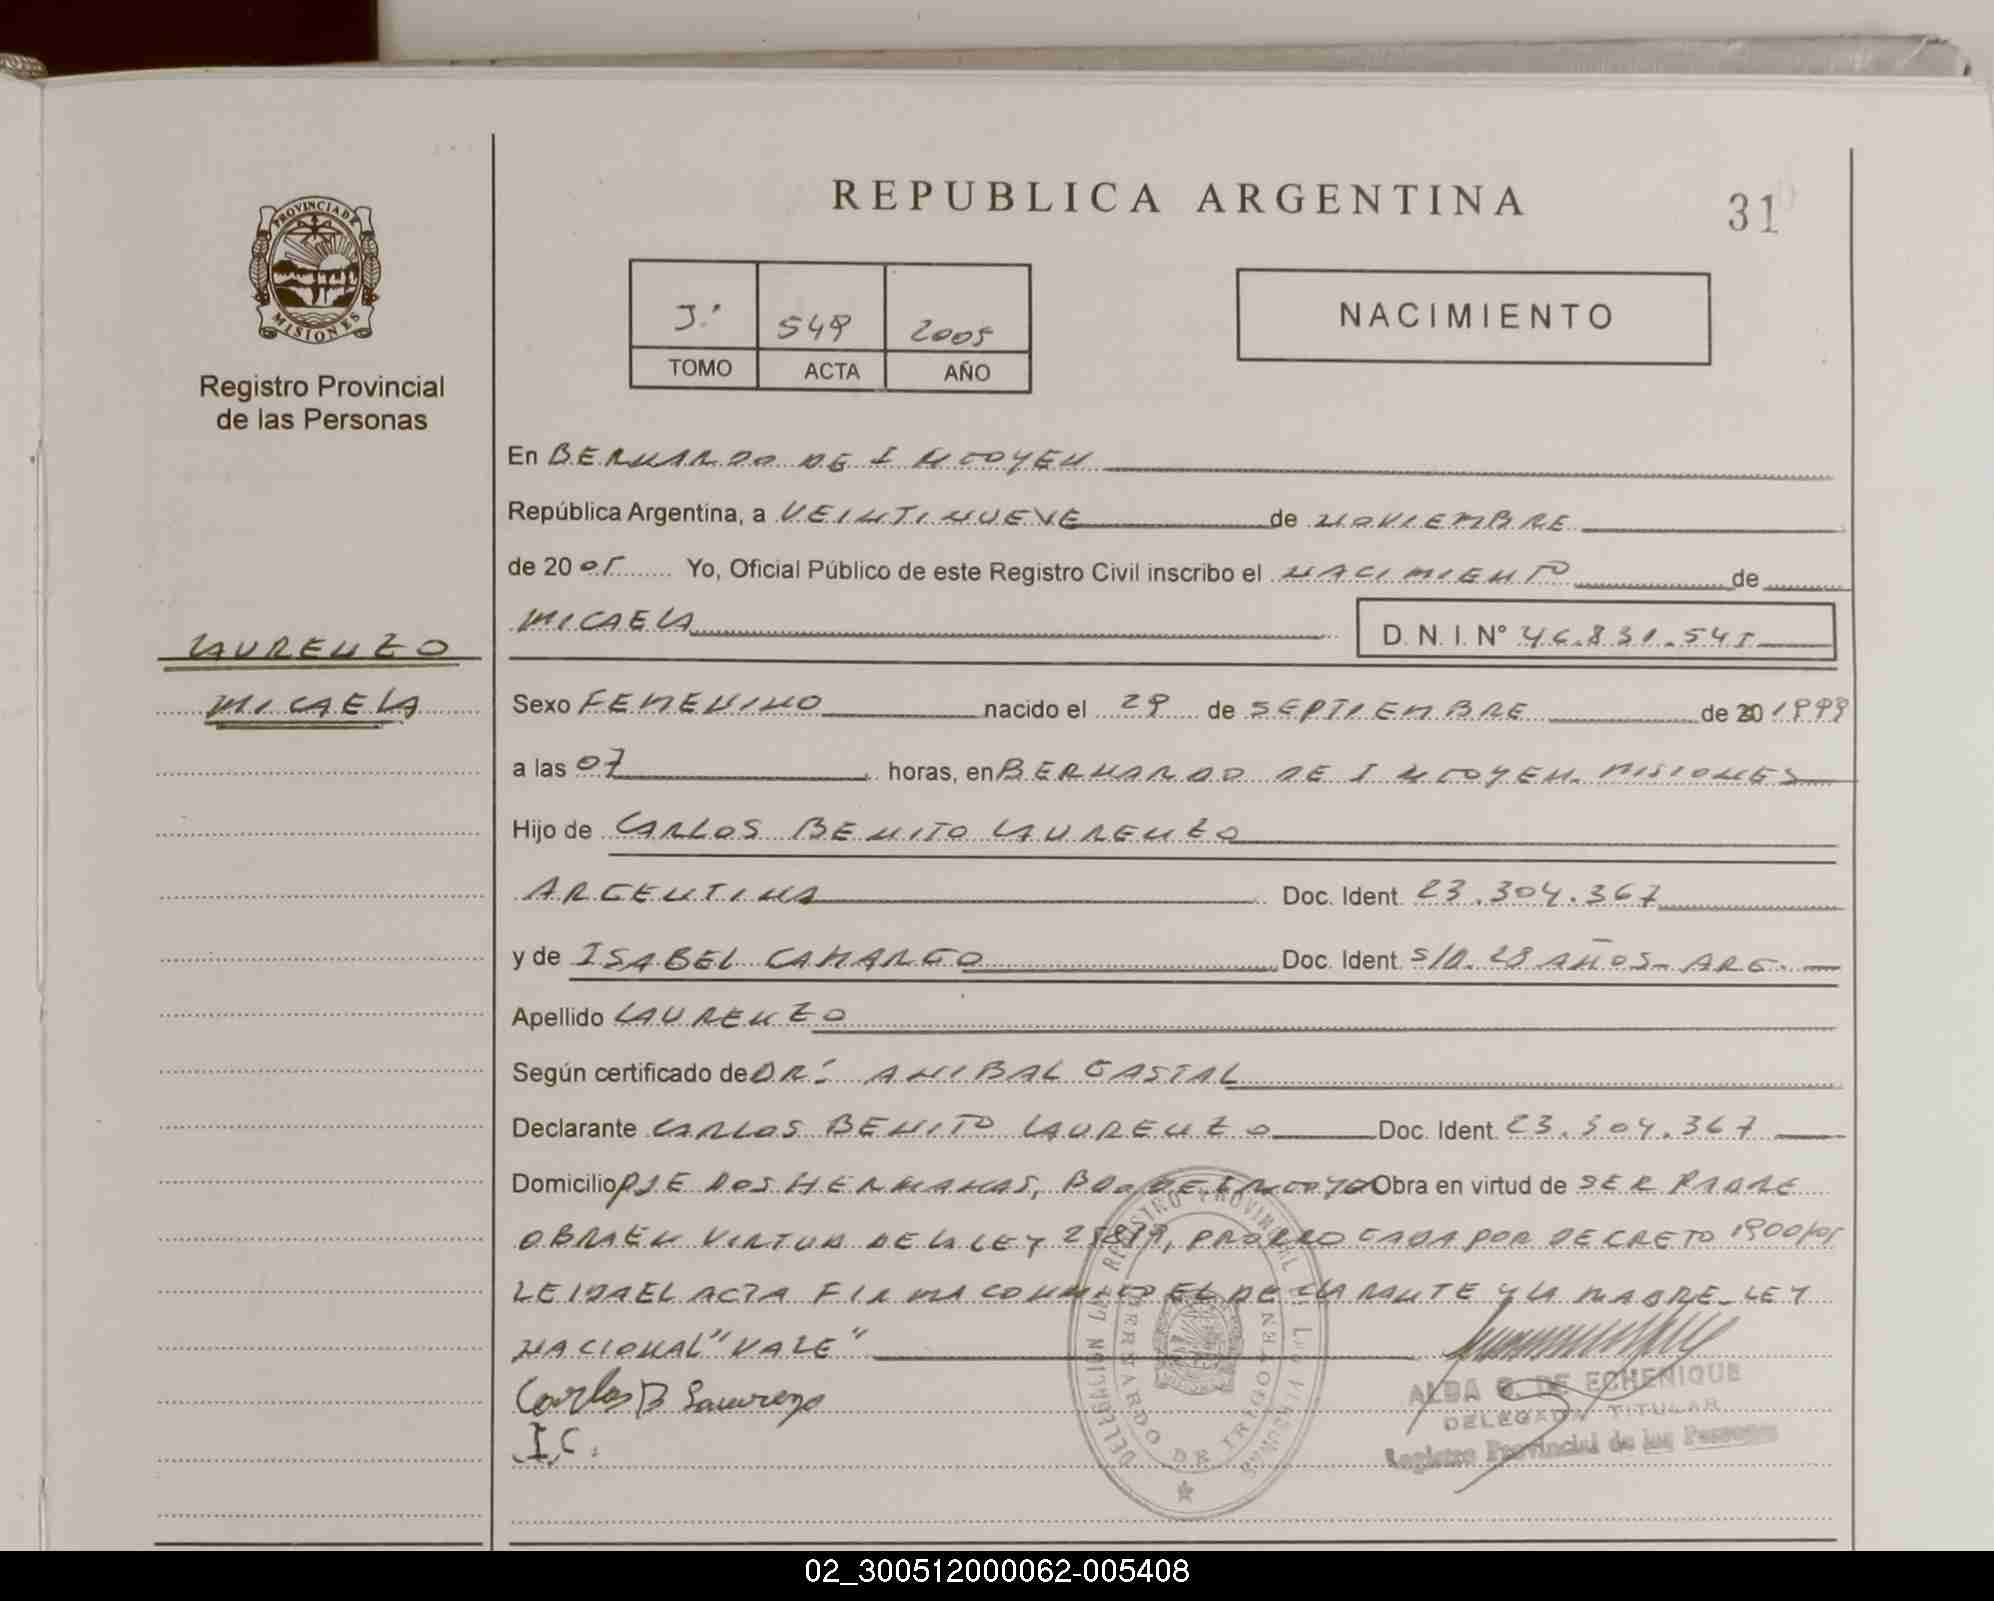 REPUBLICA ARGENTINA
31
PROVINCIA DE
MISIONES
Registro Provincial
de las Personas
549 2005
TOMO ACTA AÑO
NACIMIENTO
En BERNARDO DE IRIGOYEN
República Argentina, a VEINTINUEVE de NOVIEMBRE
de 2005 Yo, Oficial Público de este Registro Civil inscribo el NACIMIENTO de
MICAELA D. N. I. N°
LAURENZO
MICAELA
Sexo FEMENINO nacido el 29 de SEPTIEMBRE de 20 1999
a las 07 horas, en BERNARDO DE IRIGOYEN. MISIONES
Hijo de CARLOS BENITO LAURENZO
ARGENTINA Doc. Ident. 23.304.367
y de ISABEL CAMARGO Doc. Ident. S/D. 28 AÑOS - ARG.
Apellido LAURENZO
Según certificado de DR. ANIBAL GASTAL
Declarante CARLOS BENITO LAURENZO Doc. Ident. 23.304.367
Domicilio PJE DOS HERMANAS, BDO DE IRIGOYEN Obra en virtud de SER PADRE
OBRA EN VIRTUD DE LA LEY 25819, PRORROGADA POR DECRETO 1900/05
LEIDA EL ACTA FIRMA CONMIGO EL DECLARANTE Y LA MADRE - LEY
NACIONAL "VALE"
Carlos B Laurenzo
I.C.
DELEGACION DEL REGISTRO PROVINCIAL
BERNARDO DE IRIGOYEN
MISIONES
ALBA G. DE ECHENIQUE
DELEGADA TITULAR
Registro Provincial de las Personas
02_300512000062-005408